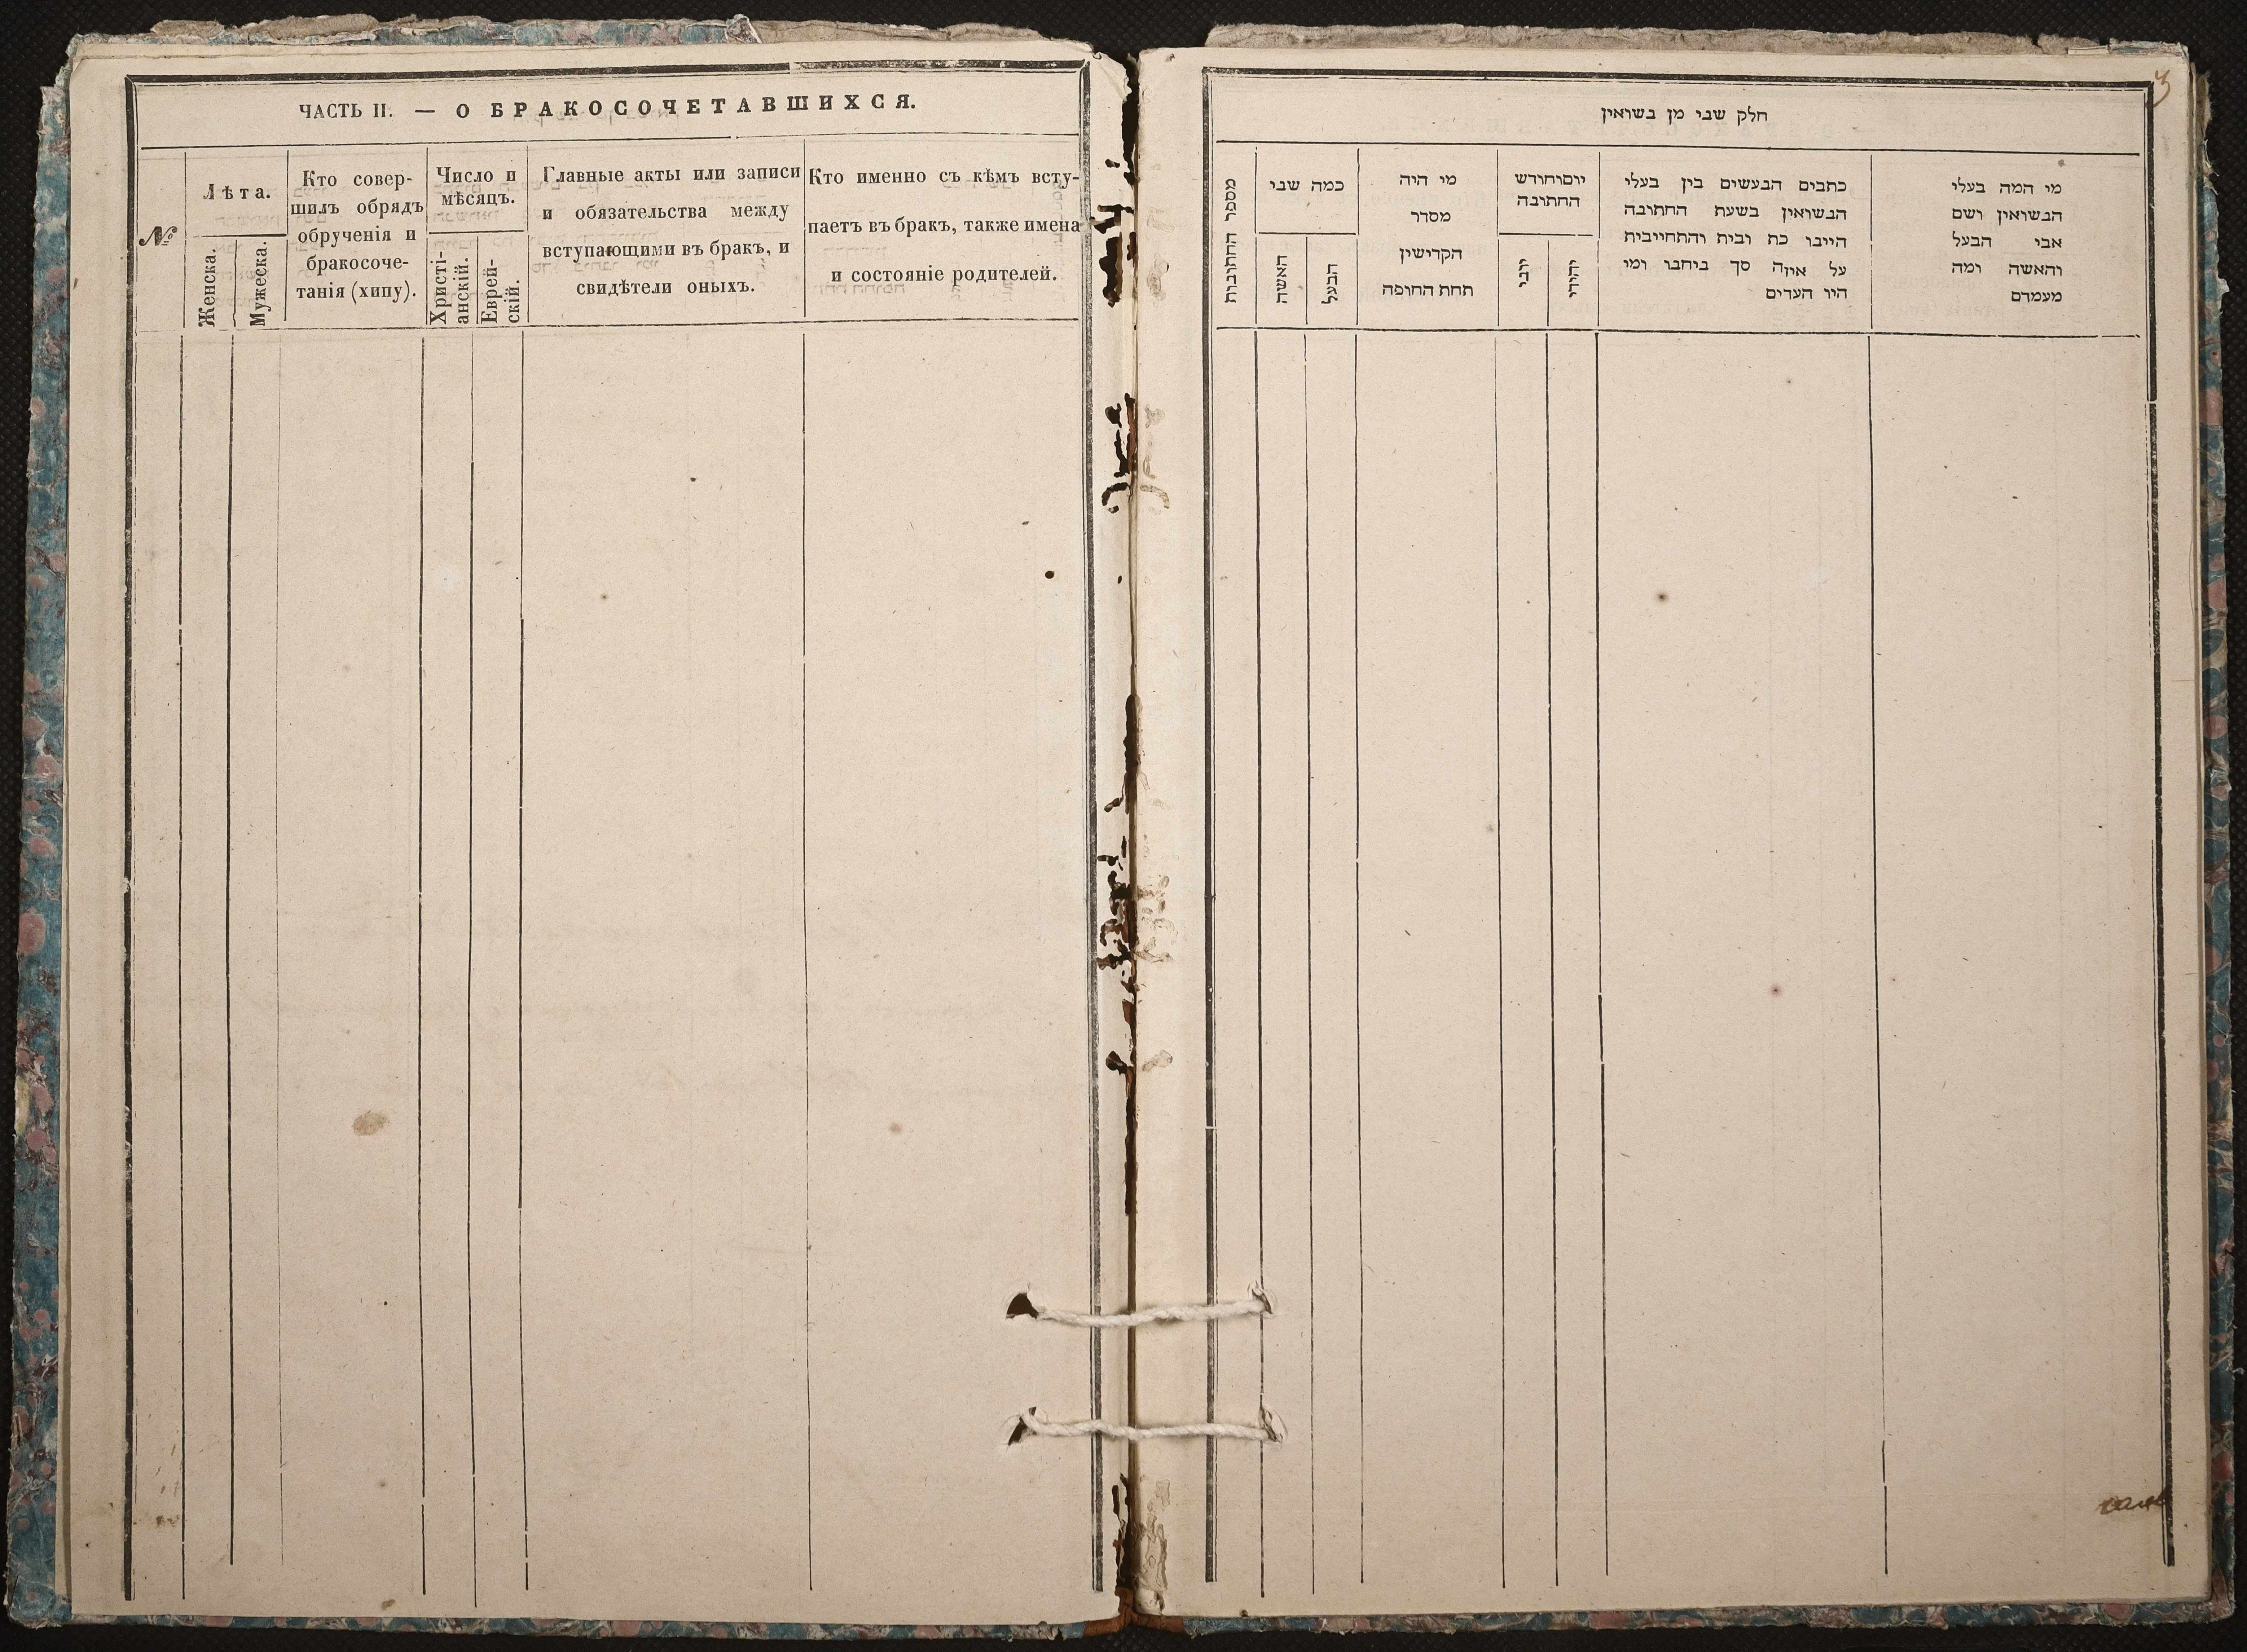 ЧАСТЬ II. — О БРАКОСОЧЕТАВШИХСЯ.
№
Лѣта.
Женска.
Мужеска.
Кто совер-
шилъ обрядъ
обрученія и
бракосоче-
танія (хипу).
Число и
мѣсяцъ.
Христі-
анскій.
Еврей-
скій.
Главные акты или записи
и обязательства между
вступающими въ бракъ, и
свидѣтели оныхъ.
Кто именно съ кѣмъ всту-
паетъ въ бракъ, также имена
и состояніе родителей.
3
חלק שני מן נשואין
מי המה בעלי
הנשואין ושם
אבי הבעל
והאשה ומה
מעמדם
כתבים הנעשים בין בעלי
הנשואין בשעת החתונה
היינו כת ובית והתחייבית
על איזה סך ביחבו ומי
היו העדים
יוםוחודש
החתונה
יהודי
יוני
מי היה
מסדר
הקדישין
תחת החופה
כמה שני
הבעל
האשה
מספר החתונות